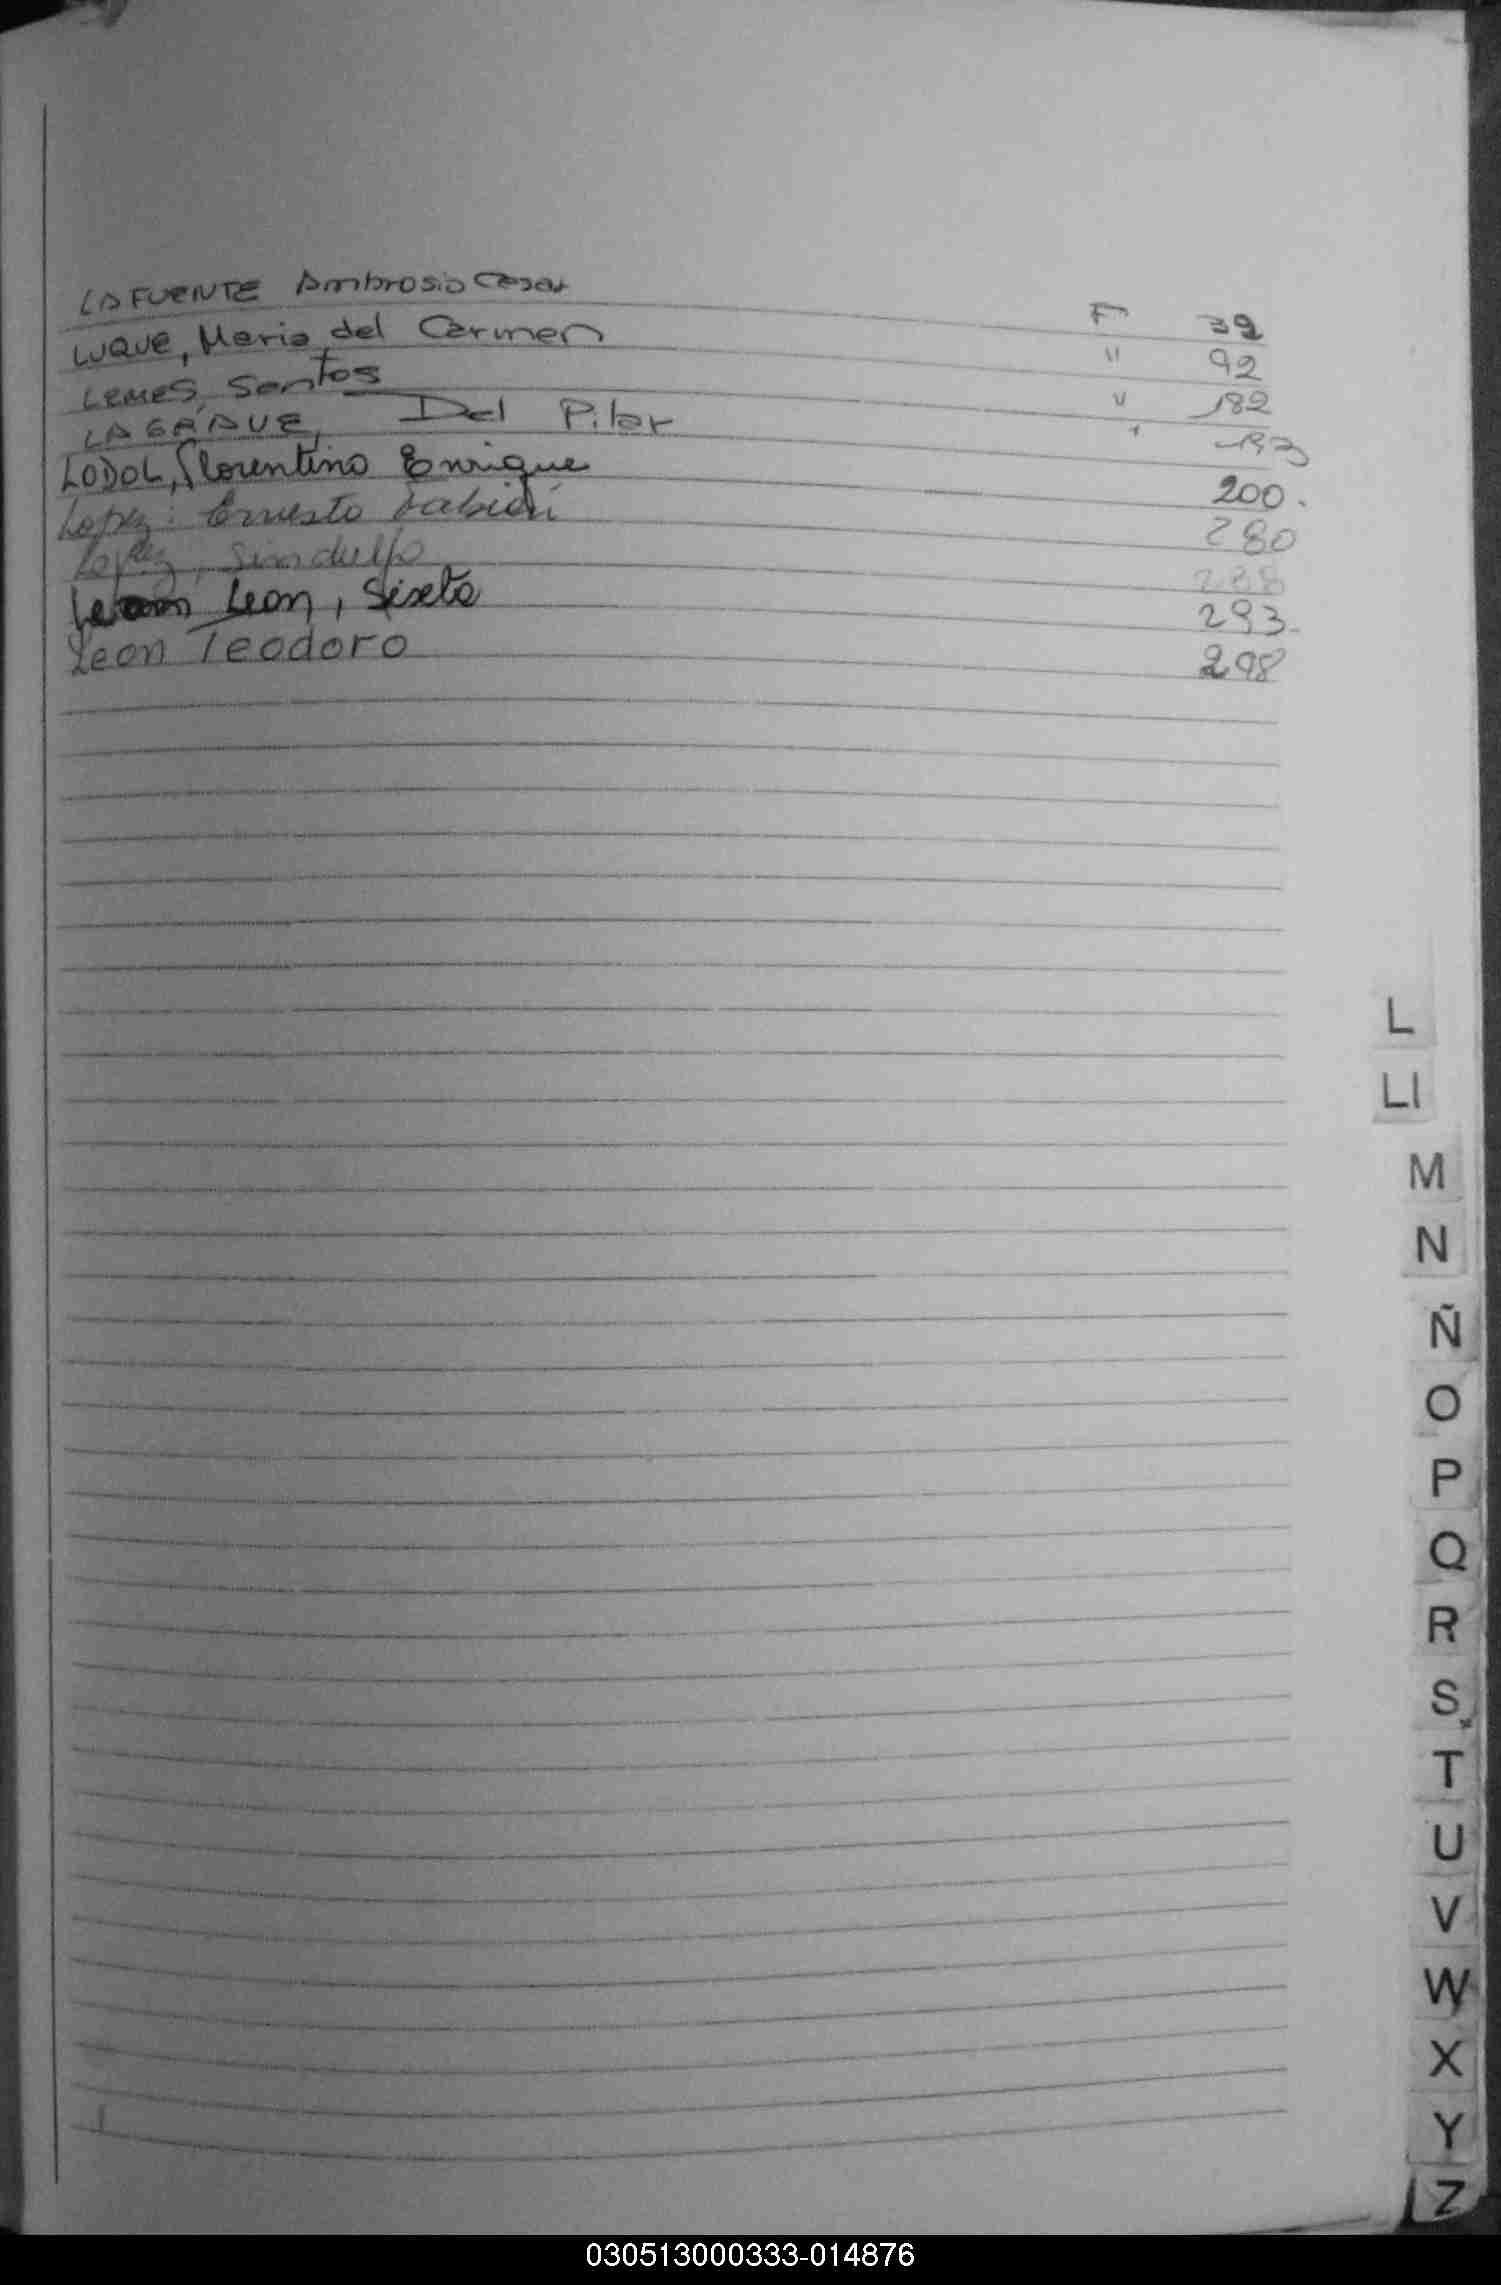 LAFUENTE Ambrosio Cesar F 39
LUQUE, Maria del Carmen " 92
LEMES, Santos " 182
Del Pilar
LODOL, Florentino Enrique 200.
Lopez: Ernesto Fabián 280
Lopez, Sindulfo 288
Leon, Sixto 293.
Leon Teodoro 298
L
Ll
M
N
Ñ
O
P
Q
R
S
T
U
V
W
X
Y
Z
030513000333-014876